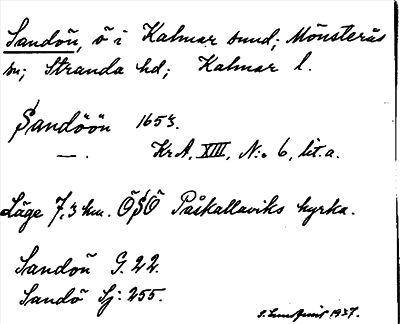 Sandön, ö i Kalmar sund; Mönsterås
sn; Stranda hd; Kalmar l.
Sandöön 1653.
— . Kr.A, XIII, N:o 6, lit. a.
Läge 7,3 km. ÖSÖ Påskallaviks kyrka.
Sandön G. 22.
Sandö Sj: 255.
1937.